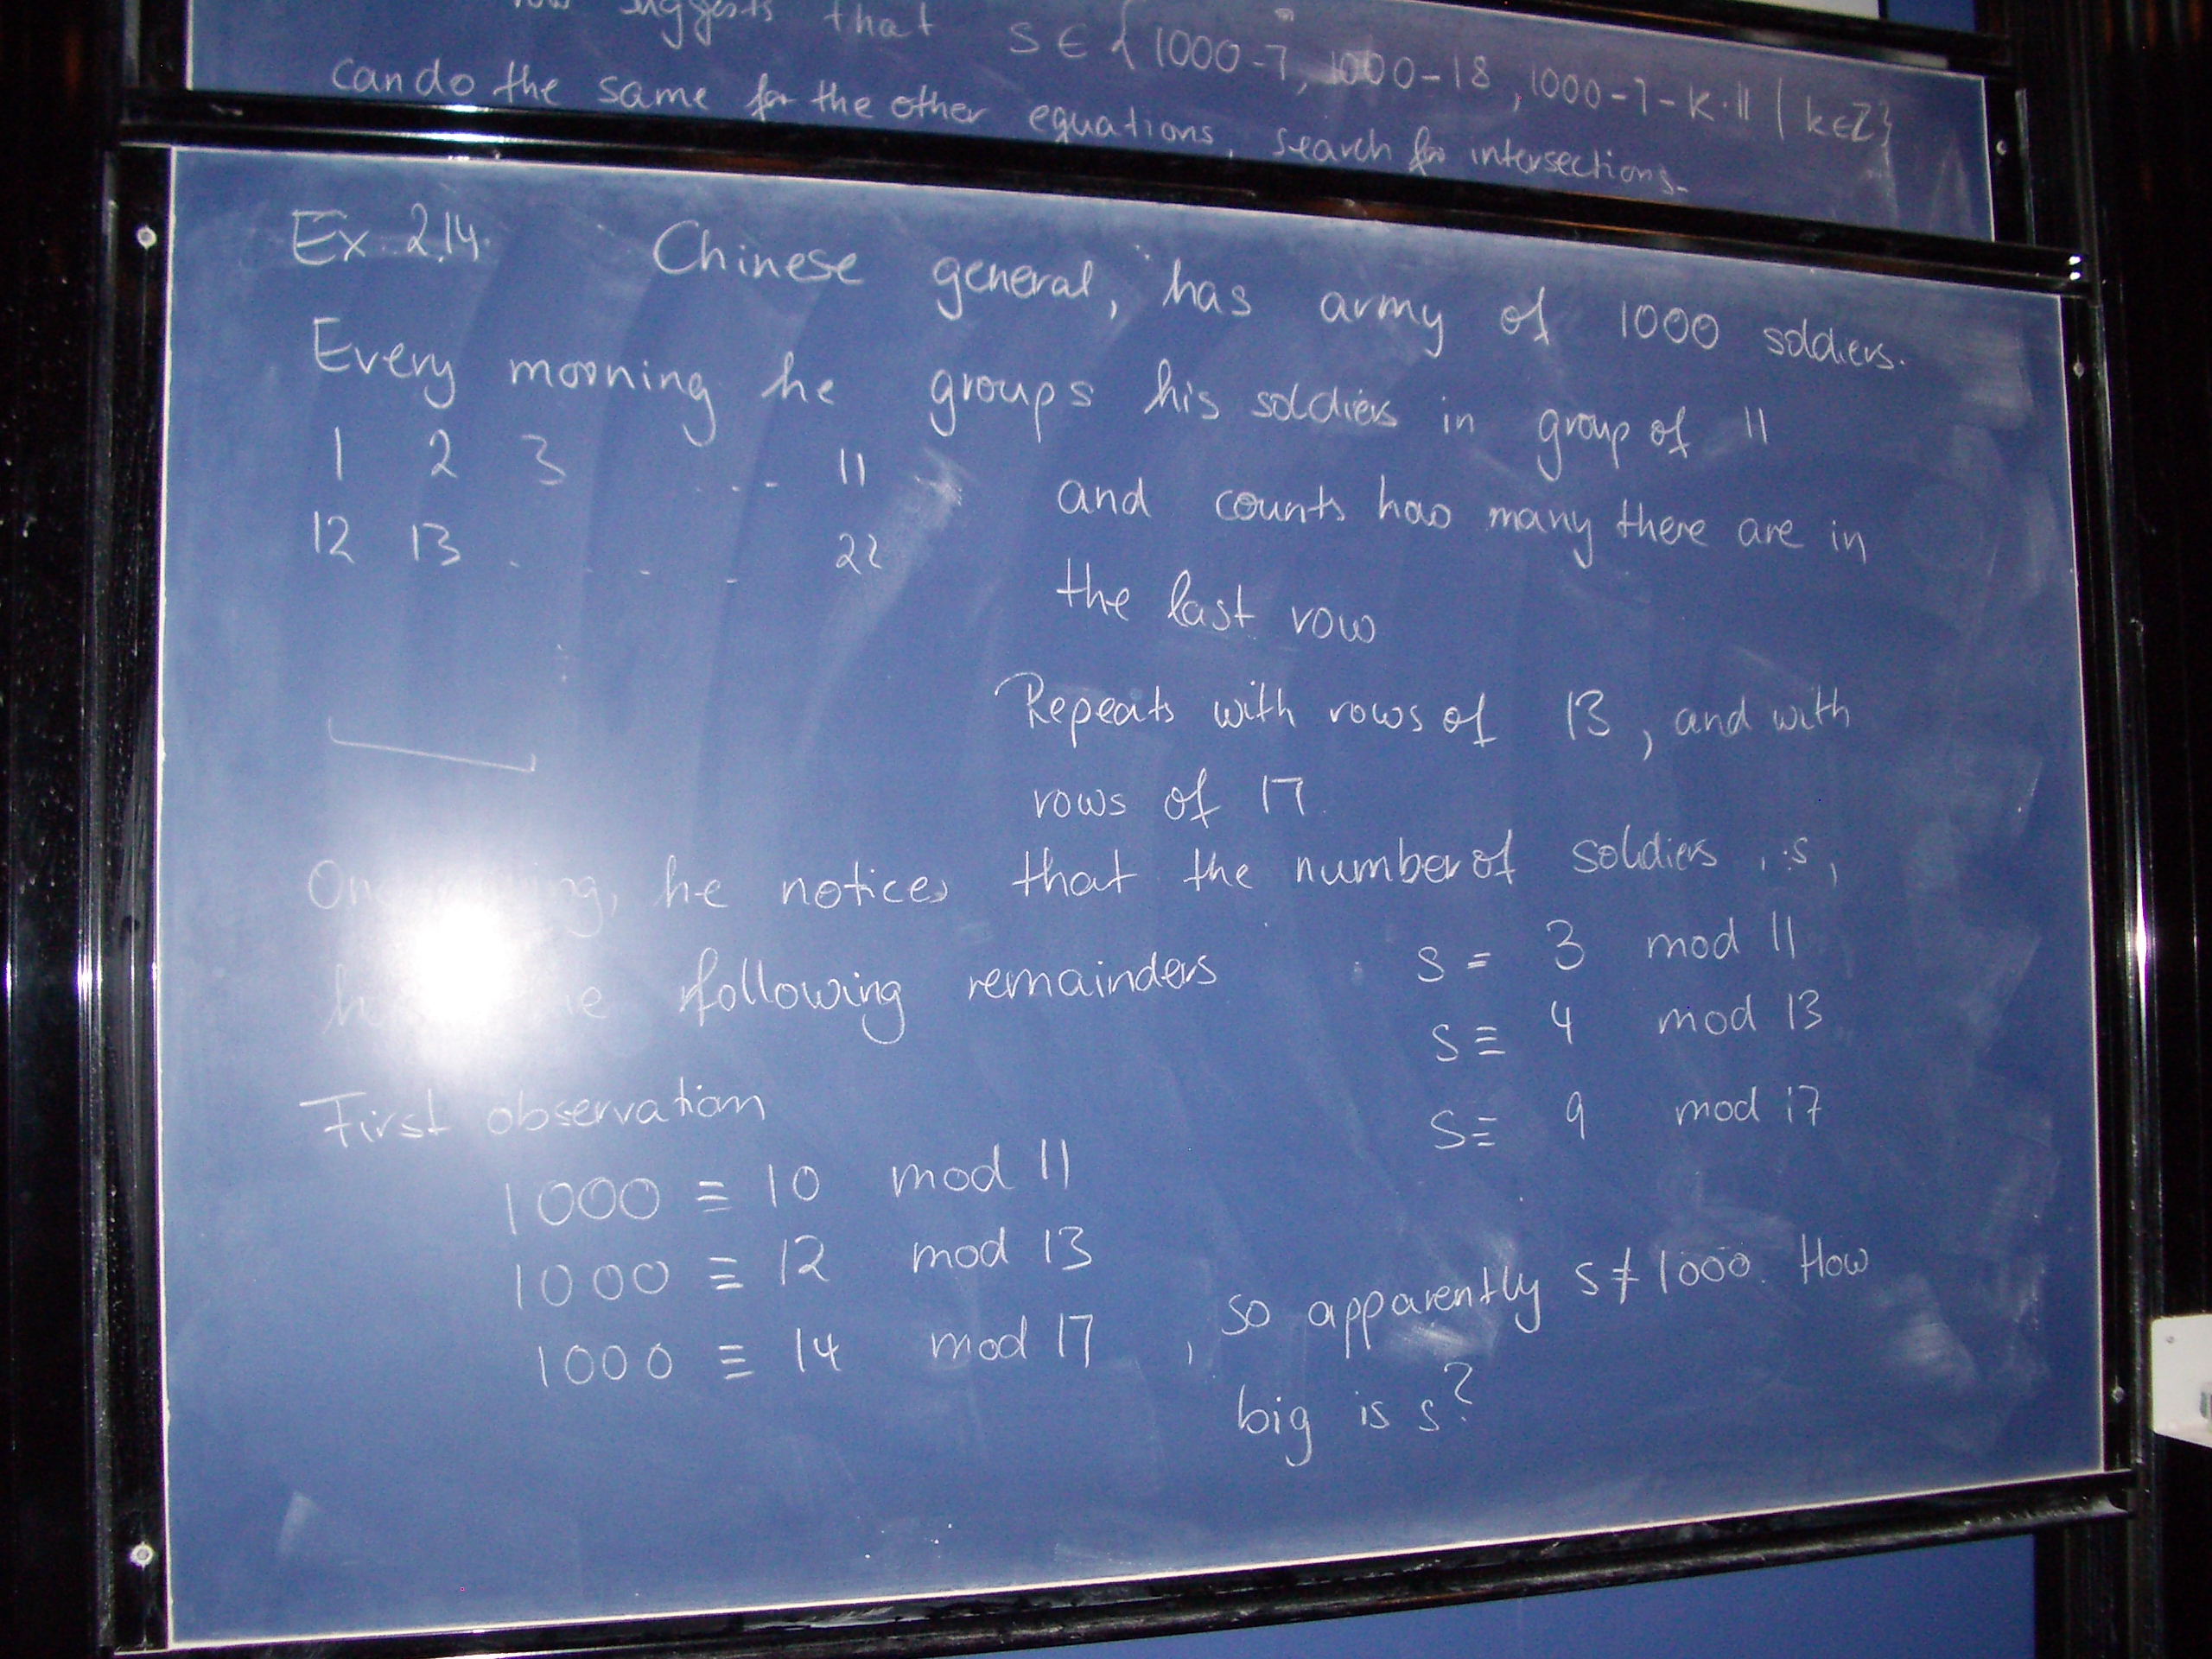 suggests that s ∈ {1000-7, 1000-18, 1000-7-k·11 | k∈Z}
can do the same for the other equations, search for intersections.
Ex. 2.14. Chinese general, has army of 1000 soldiers.
Every morning he groups his soldiers in group of 11
1 2 3 . . . . 11
12 13 . . . . 22
and counts how many there are in
the last row
Repeats with rows of 13, and with
rows of 17.
he notices that the number of soldiers, s,
following remainders
s = 3 mod 11
s ≡ 4 mod 13
s ≡ 9 mod 17
First observation
1000 ≡ 10 mod 11
1000 ≡ 12 mod 13
1000 ≡ 14 mod 17, so apparently s ≠ 1000. How
big is s?